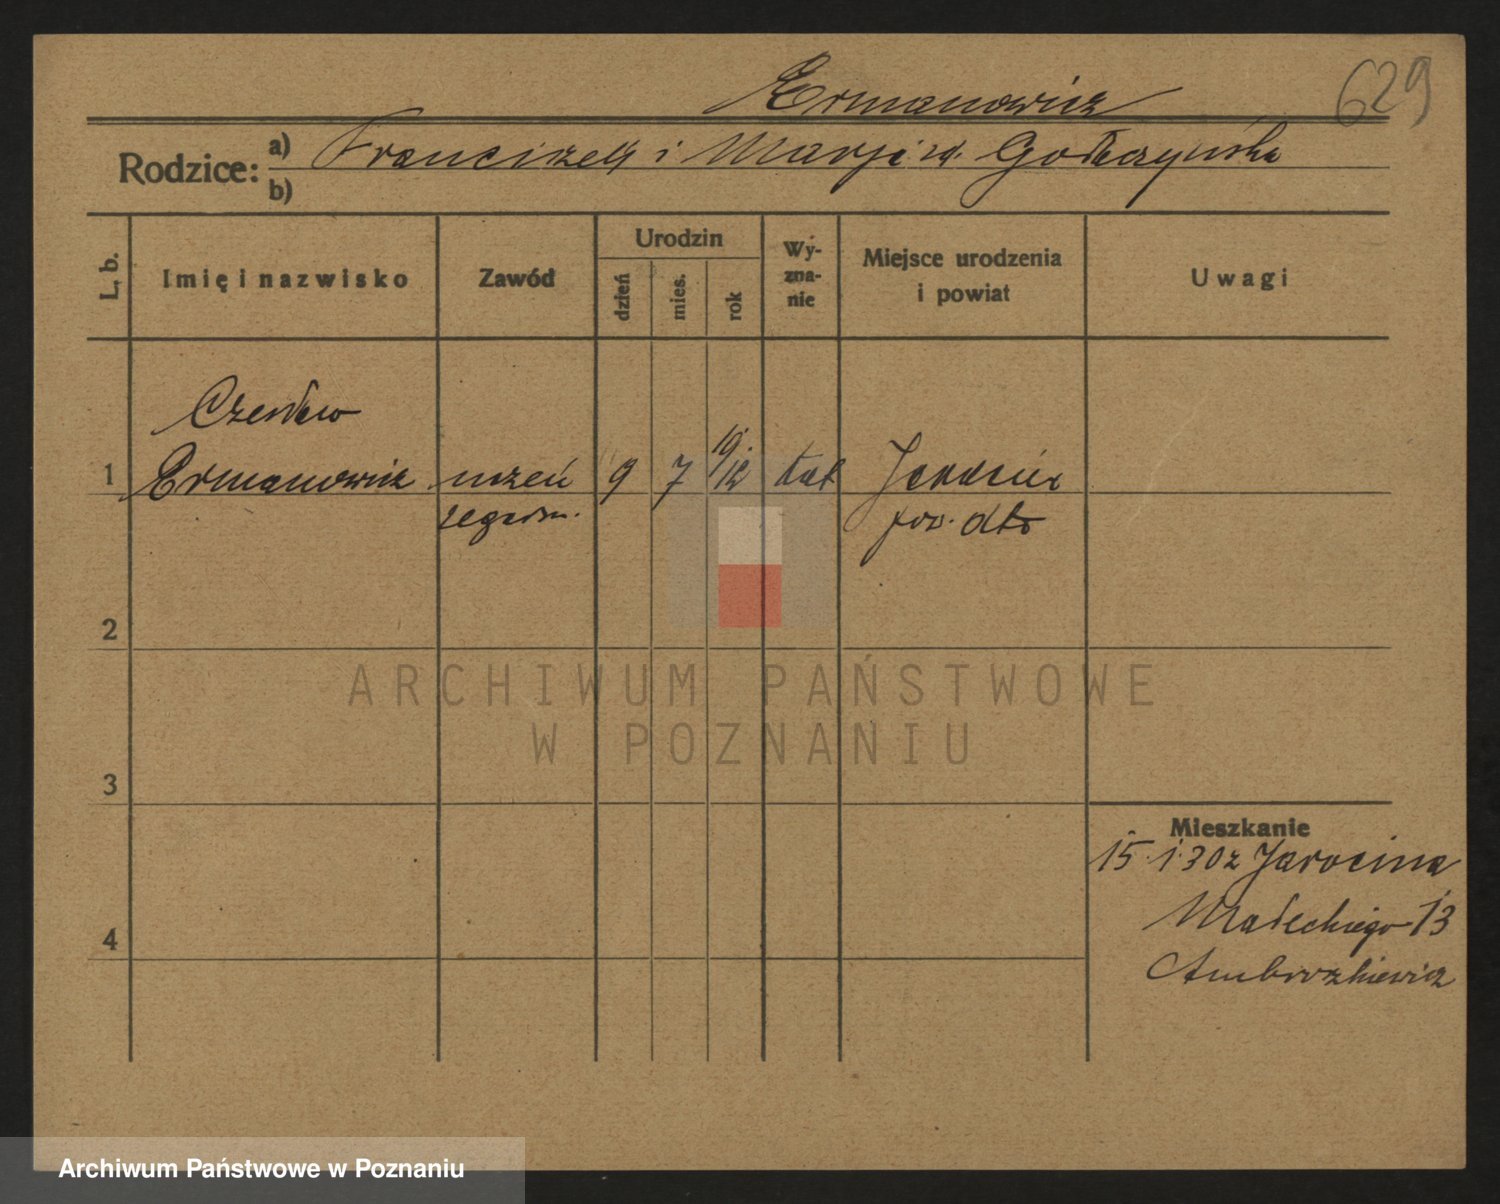 629
Ermanowicz
Rodzice: a) Franciszek i Marja z d. Gołaczyńska
b)
L. b. Imię i nazwisko Zawód Urodzin dzień mies. rok Wy-zna-nie Miejsce urodzenia i powiat Uwagi
Czesław
1 Ermanowicz uczeń 9 7 19/12 kat Jarocin
zegarm. pow. dto
2
ARCHIWUM PAŃSTWOWE
W POZNANIU
3
Mieszkanie
15.1.30 z Jarocina
Małeckiego 13
4
Ambrozkiewicz
Archiwum Państwowe w Poznaniu